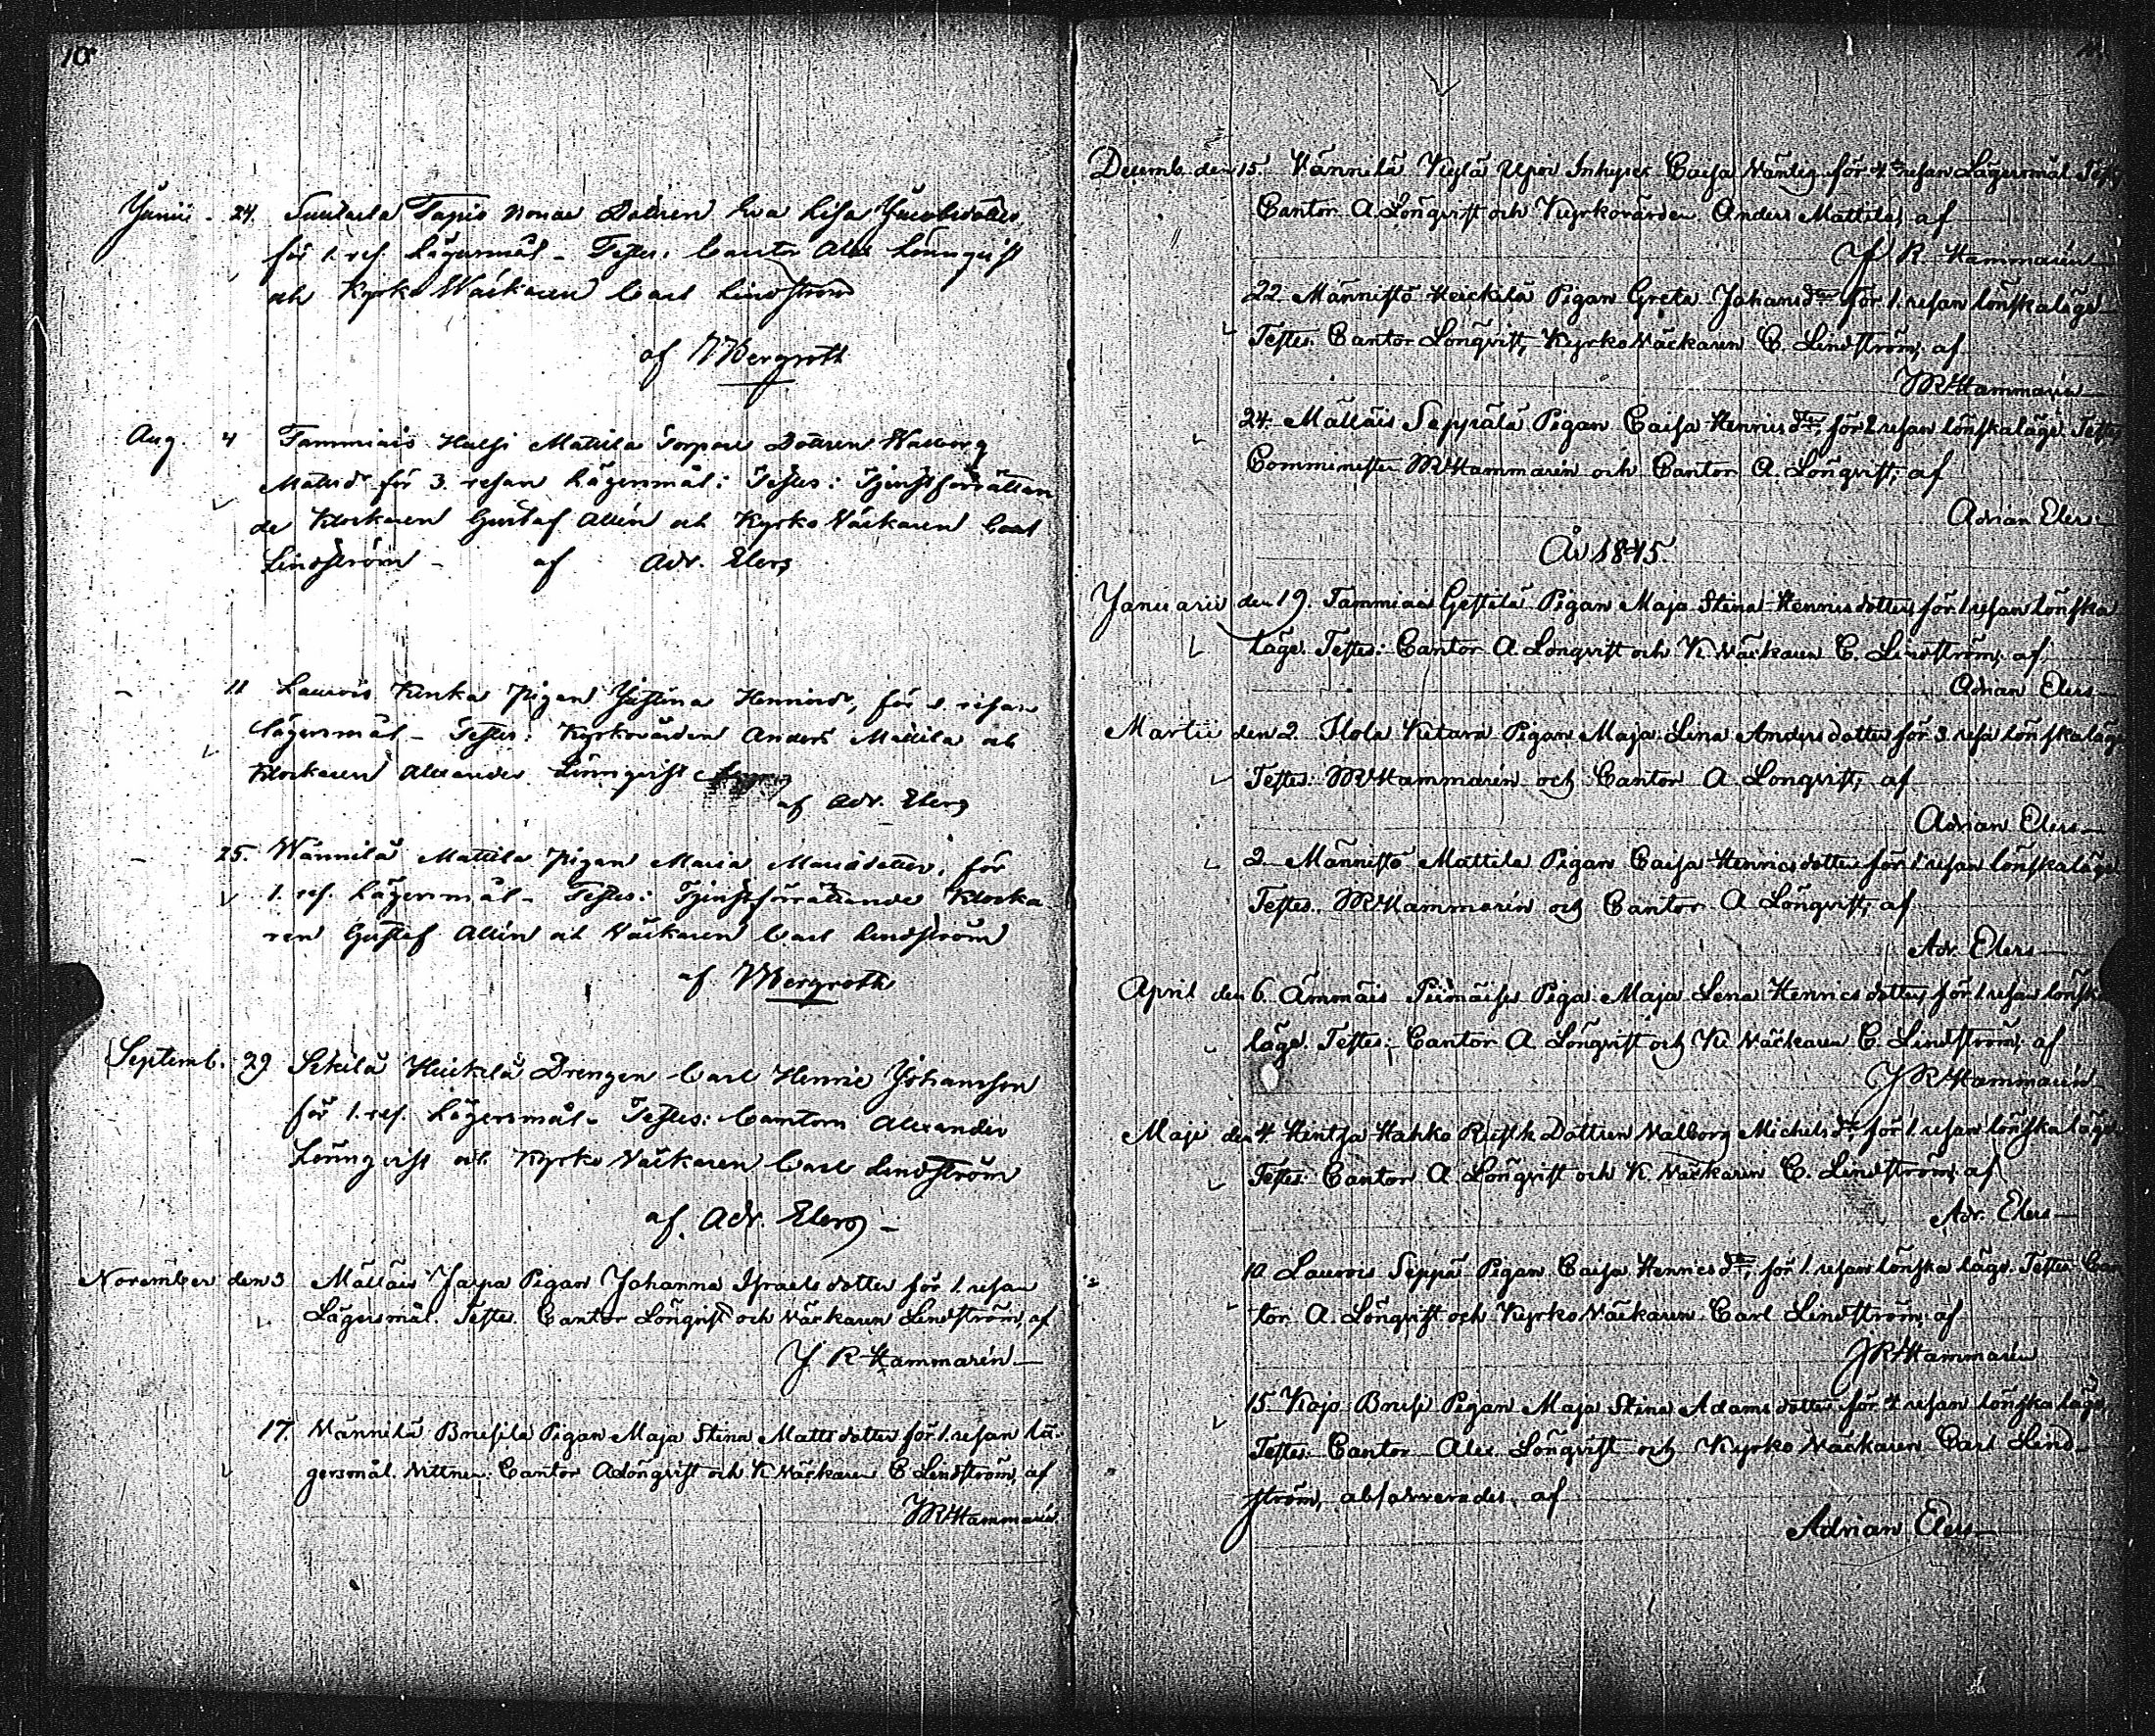 10
Junii - 24. Tapio Dottren Eva Lisa Jacobsdotter
för 1. ref. Lägersmål - Testes: Cantor Alex Lönnqvist
och Kyrko Wäcktaren Carl Lindström
af Bergroth
Aug. 4 Tammiais Mattila Torpare Dottren Walborg
Mattsdr för 3. resan Lägersmål: Testes: Tjenstförrättan
de Klockaren Gustaf Allén och Kyrko Väcktaren Carl
Lindström - af Adr. Elers
- 11 Laurois Pigan Justina Henricsdr, för resan
Lägersmål - Testes: Kyrkovärden Anders Mattila och
Klockaren Alexander Lönnqvist
af Adr. Elers
- 25. Wännilä Mattila Pigan Maria för
1. ref. Lägersmål - Testes: Tjenstförrättande Klocka
ren Gustaf Allén och Väcktaren Carl Lindström
af Bergroth
Septemb. 29 Heickilä Drengen Carl Henric Johansson
för 1. ref. Lägersmål - Testes: Cantorn Alexander
Lönnqvist och Kyrko Väcktaren Carl Lindström
af Adr. Elers -
November den 3 Mälläis Jaspa Pigan Johanna Israels dotter för 1. resan
Lägersmål. Testes. Cantor Lönqvist och Väcktaren Lindström, af
J R Hammarén
17. Vännilä Pigan Maja Stina Matts dotter för 1. resan lä-
gersmål. Vittnen: Cantor A Lönqvist och K Väcktaren C Lindström, af
JR Hammarén
Decemb. den 15. Vännilä Kylä Inhyses Caisa för 4de resan Lägersmål Test
Cantor A. Lönqvist och Kyrkovärden Anders Mattila, af
J R Hammarén
22. Männistö Heickilä Pigan Greta Johansdtr för 1. resan lönskaläge
Testes. Cantor Lönqvist, Kyrko Väcktaren C. Lindström, af
JR Hammarén
24. Mälläis Seppälä Pigan Caisa Henricsdtr, för 2 resan lönskaläge. Testes
Comminister JR Hammarén och Cantor A. Lönqvist, af
Adrian Elers
År 1845.
Januarii den 19. Tammiais Pigan Maja Stina Henricsdotter, för 1 resan lönska
läge. Testes: Cantor A. Lönqvist och K Väcktaren C. Lindström, af
Adrian Elers
Martii den 2. Ilola Ketara Pigan Maja Lina Andersdotter för 3. resa lönskaläge
Testes: JR Hammarén och Cantor A Lönqvist, af
Adrian Elers
2. Männistö Mattila Pigan Caisa Henricsdotter för 1 resan lönskaläge
Testes. JR Hammarén och Cantor A Lönqvist, af
Adr. Elers
April den 6. Ammäis Piga Maja Lena Henricsdotter, för 1 resan lönska
läge. Testes: Cantor A. Lönqvist och K. Väcktaren C. Lindström, af
J R Hammarén
Maji den 4. Hintsa Hahko Dottren Valborg Michelsdtr, för 1. resan lönskaläge
Testes: Cantor A. Lönqvist och K. Väcktaren C. Lindström, af
Adr. Elers
10 Laurois Seppä Pigan Caisa Henricsdtr, för 1. resan lönska läge. Testes Can
tor A. Lönqvist och Kyrko Väcktaren Carl Lindström, af
JR Hammarén
15. Kojo Pigan Maja Stina Adamsdotter för 4 resan lönska läge,
Testes: Cantor Alex. Lönqvist och Kyrko Väcktaren Carl Lind-
ström, absolverades af
Adrian Elers